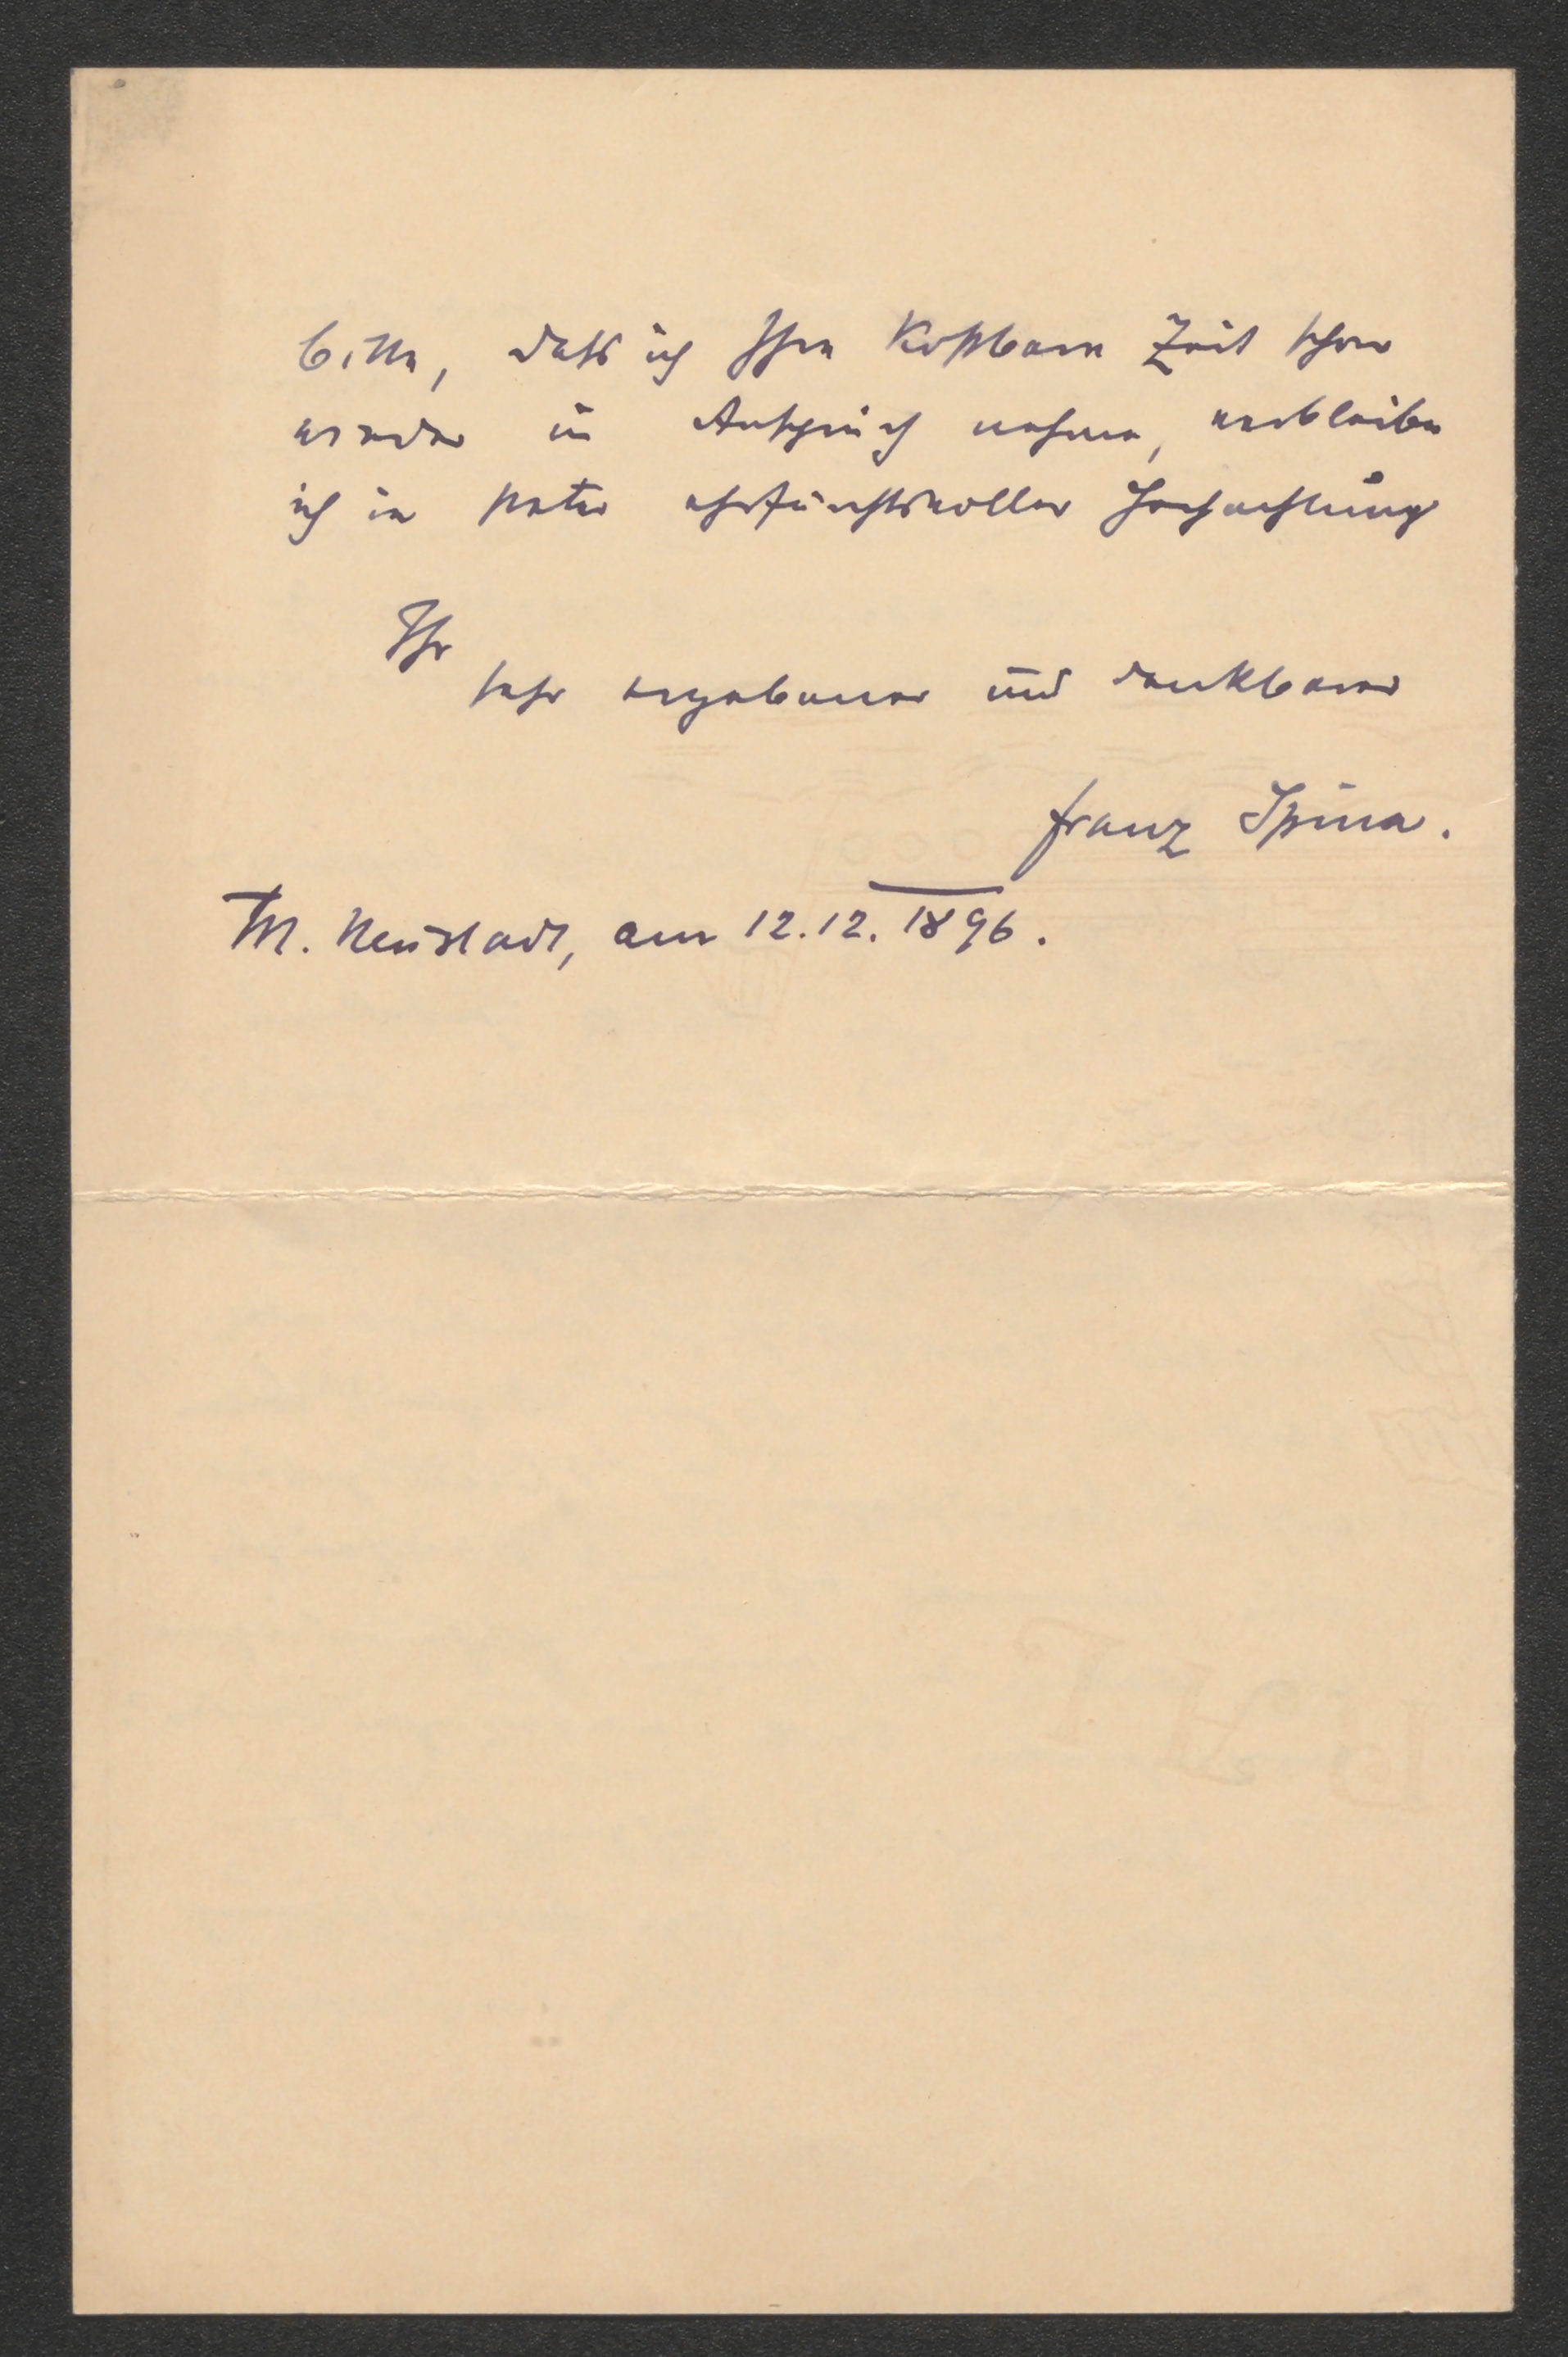 bitte, dass ich Ihre kostbare Zeit schon
wieder in Anspruch nehme, verbleibe
ich in steter ehrfurchtsvoller Hochachtung
Ihr
sehr ergebener und dankbarer
Franz Spina.
M. Neustadt, am 12.12.1896.